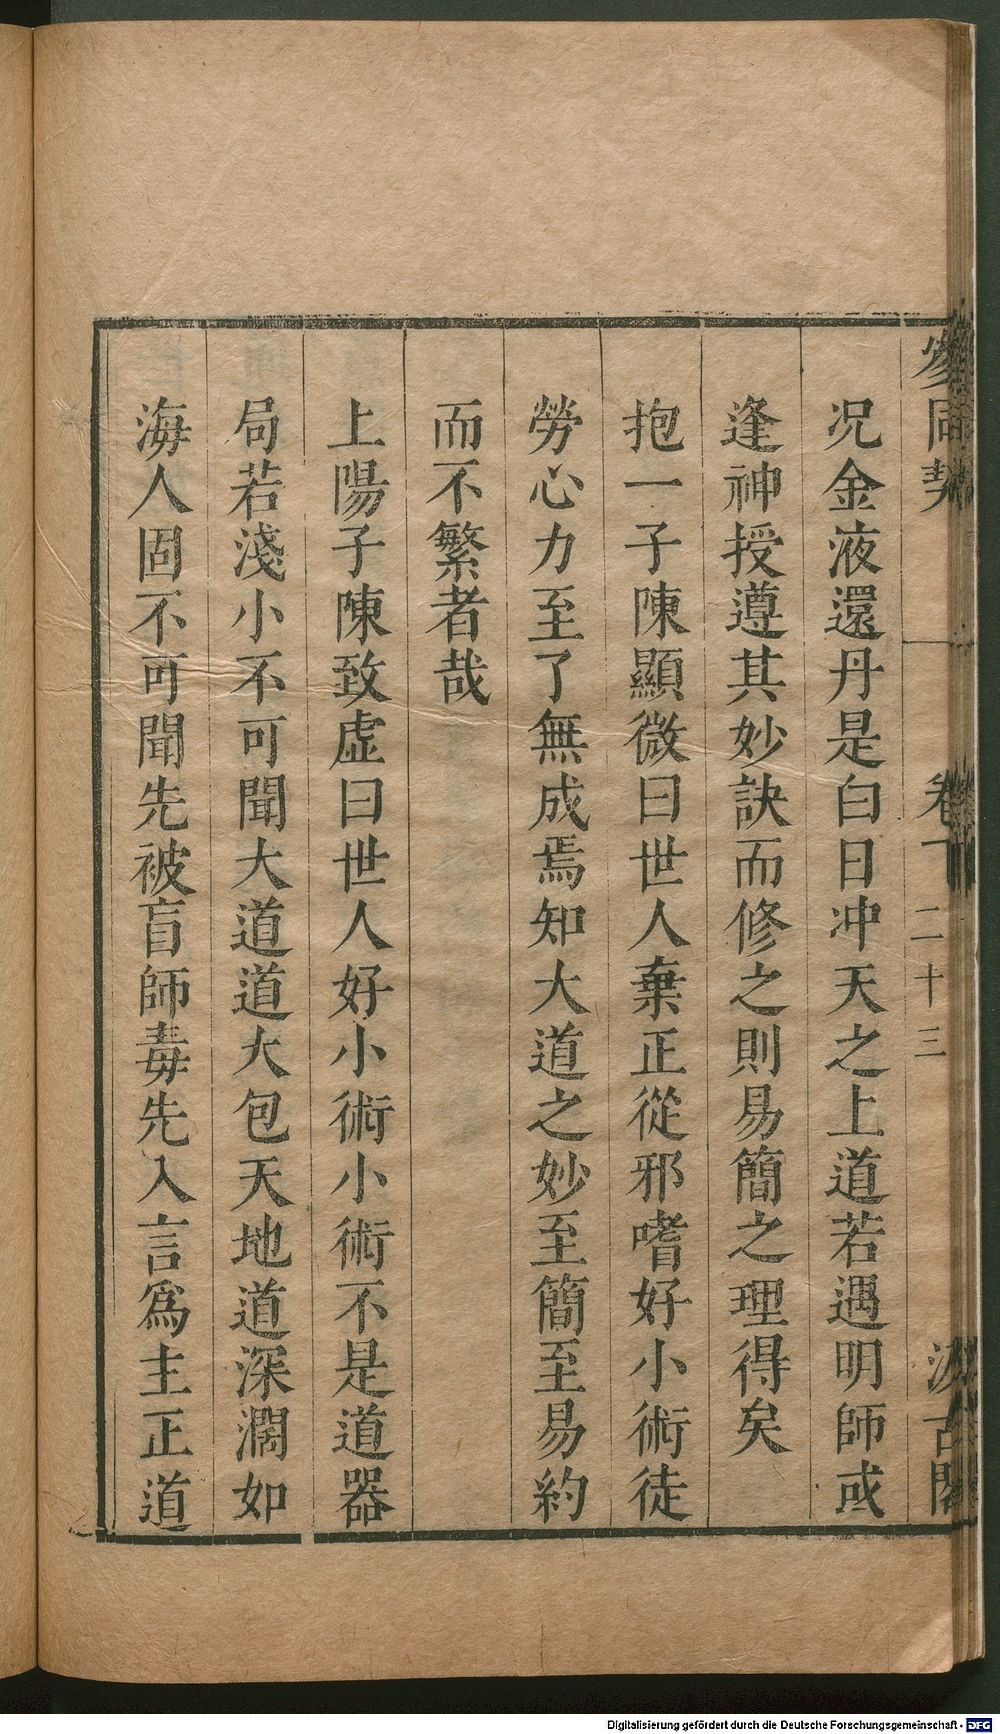 參同契 卷下 二十三 汲古閣
况金液還丹是白日冲天之上道若遇明師或
逢神授遵其妙訣而修之則易簡之理得矣
抱一子陳顯微曰世人棄正從邪嗜好小術徒
勞心力至了無成焉知大道之妙至簡至易約
而不繁者哉
上陽子陳致虛曰世人好小術小術不是道器
局若淺小不可聞大道道大包天地道深濶如
海人固不可聞先被盲師毒先入言爲主正道
Digitalisierung gefördert durch die Deutsche Forschungsgemeinschaft - DFG